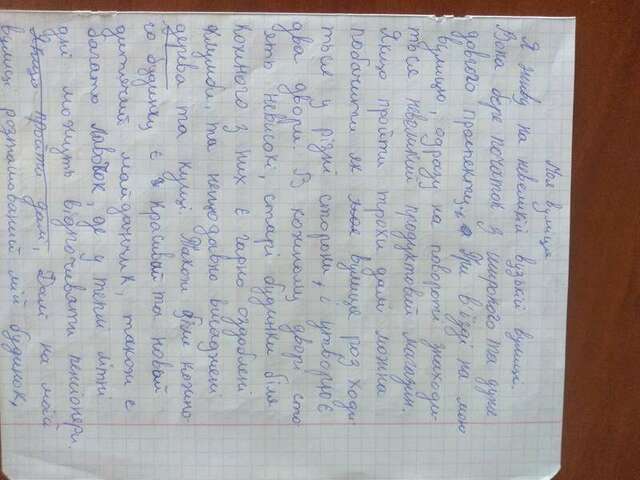 Моя вулиця
Я живу на невеликій вузькій вулиці.
Вона бере початок з широкого та дуже
довгого проспекту. При в'їзді на мою
вулицю, одразу на повороті знаходи-
ться невеликий продуктовий магазин.
Якщо пройти трохи далі можна
побачити як вулиця роз ходи
ться у різні сторони, і утворює
два двори. В кожному дворі сто
ять невисокі, старі будинки біля
кожного з них є гарно оздоблені
клумби, та нещодавно висаджені
дерева та кущі. Також біля кожно-
го будинку є красивий та новий
дитячий майданчик, також є
багато лавочок, де у теплі літні
дні можуть відпочивати пенсіонери.
Якщо пройти далі, Далі на моїй
вулиці розташований мій будинок,